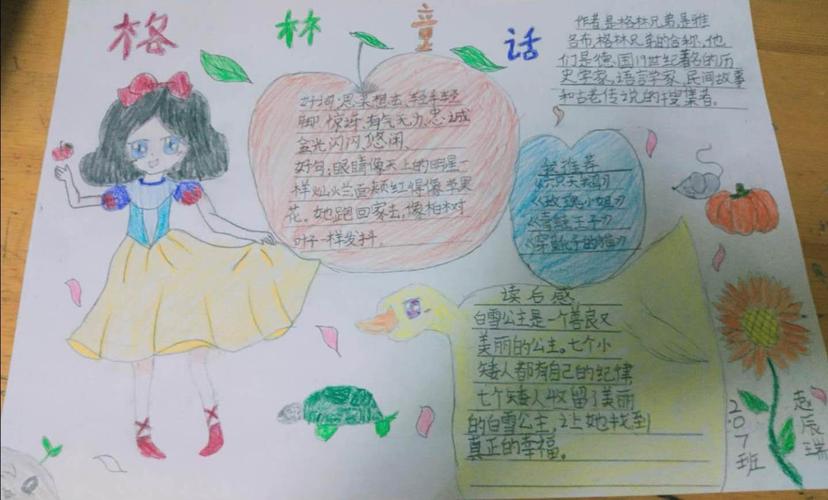 格林童话
作者是格林兄弟是雅
各布、格林兄弟的合称,他
们是德国19世纪著名的历
史学家,语言学家,民间故事
和古老传说的搜集者。
好词:思来想去、轻手轻
脚、惊讶、有气无力、忠诚
金光闪闪、悠闲、
好句:眼睛像天上的明星一
样灿烂、面颊红得像苹果
花。她跑回家去,像柏树
叶子一样发抖。
推荐
《玫瑰小姐》
《青蛙王子》
《穿靴子的猫》
读后感
白雪公主是一个善良又
美丽的公主。七个小
矮人都有自己的纪律
七个矮人收留了美丽
的白雪公主,让她找到
真正的幸福。
2.07班
赵辰瑞